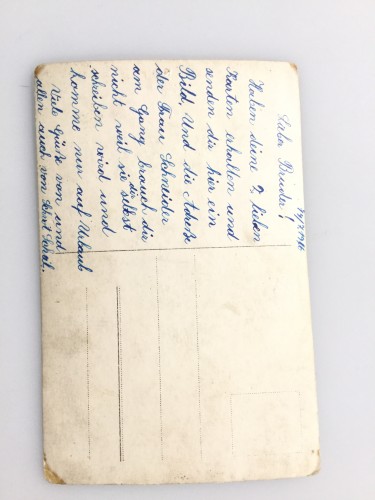 Liebe Brüder!
Haben deine 2 lieben
Karten erhalten und
senden dir hier ein
Bild. Und die Adreße
der Frau Schneider
am Gang brauch ich dir
nicht weil sie selbst
schreiben wird und
komme nur auf Urlaub
Viele Grüße von uns
allen auch von